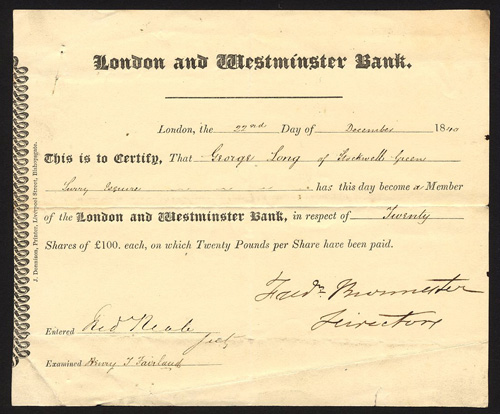 London and Westminster Bank.
London, the 22nd Day of December 1840
This is to Certify, That George Long of Stockwell Green
Surry Esquire has this day become a Member
of the London and Westminster Bank, in respect of Twenty
Shares of £100. each, on which Twenty Pounds per Share have been paid.
Director
Entered
Examined Henry T Fairland
J. Dennison, Printer, Liverpool Street, Bishopsgate.